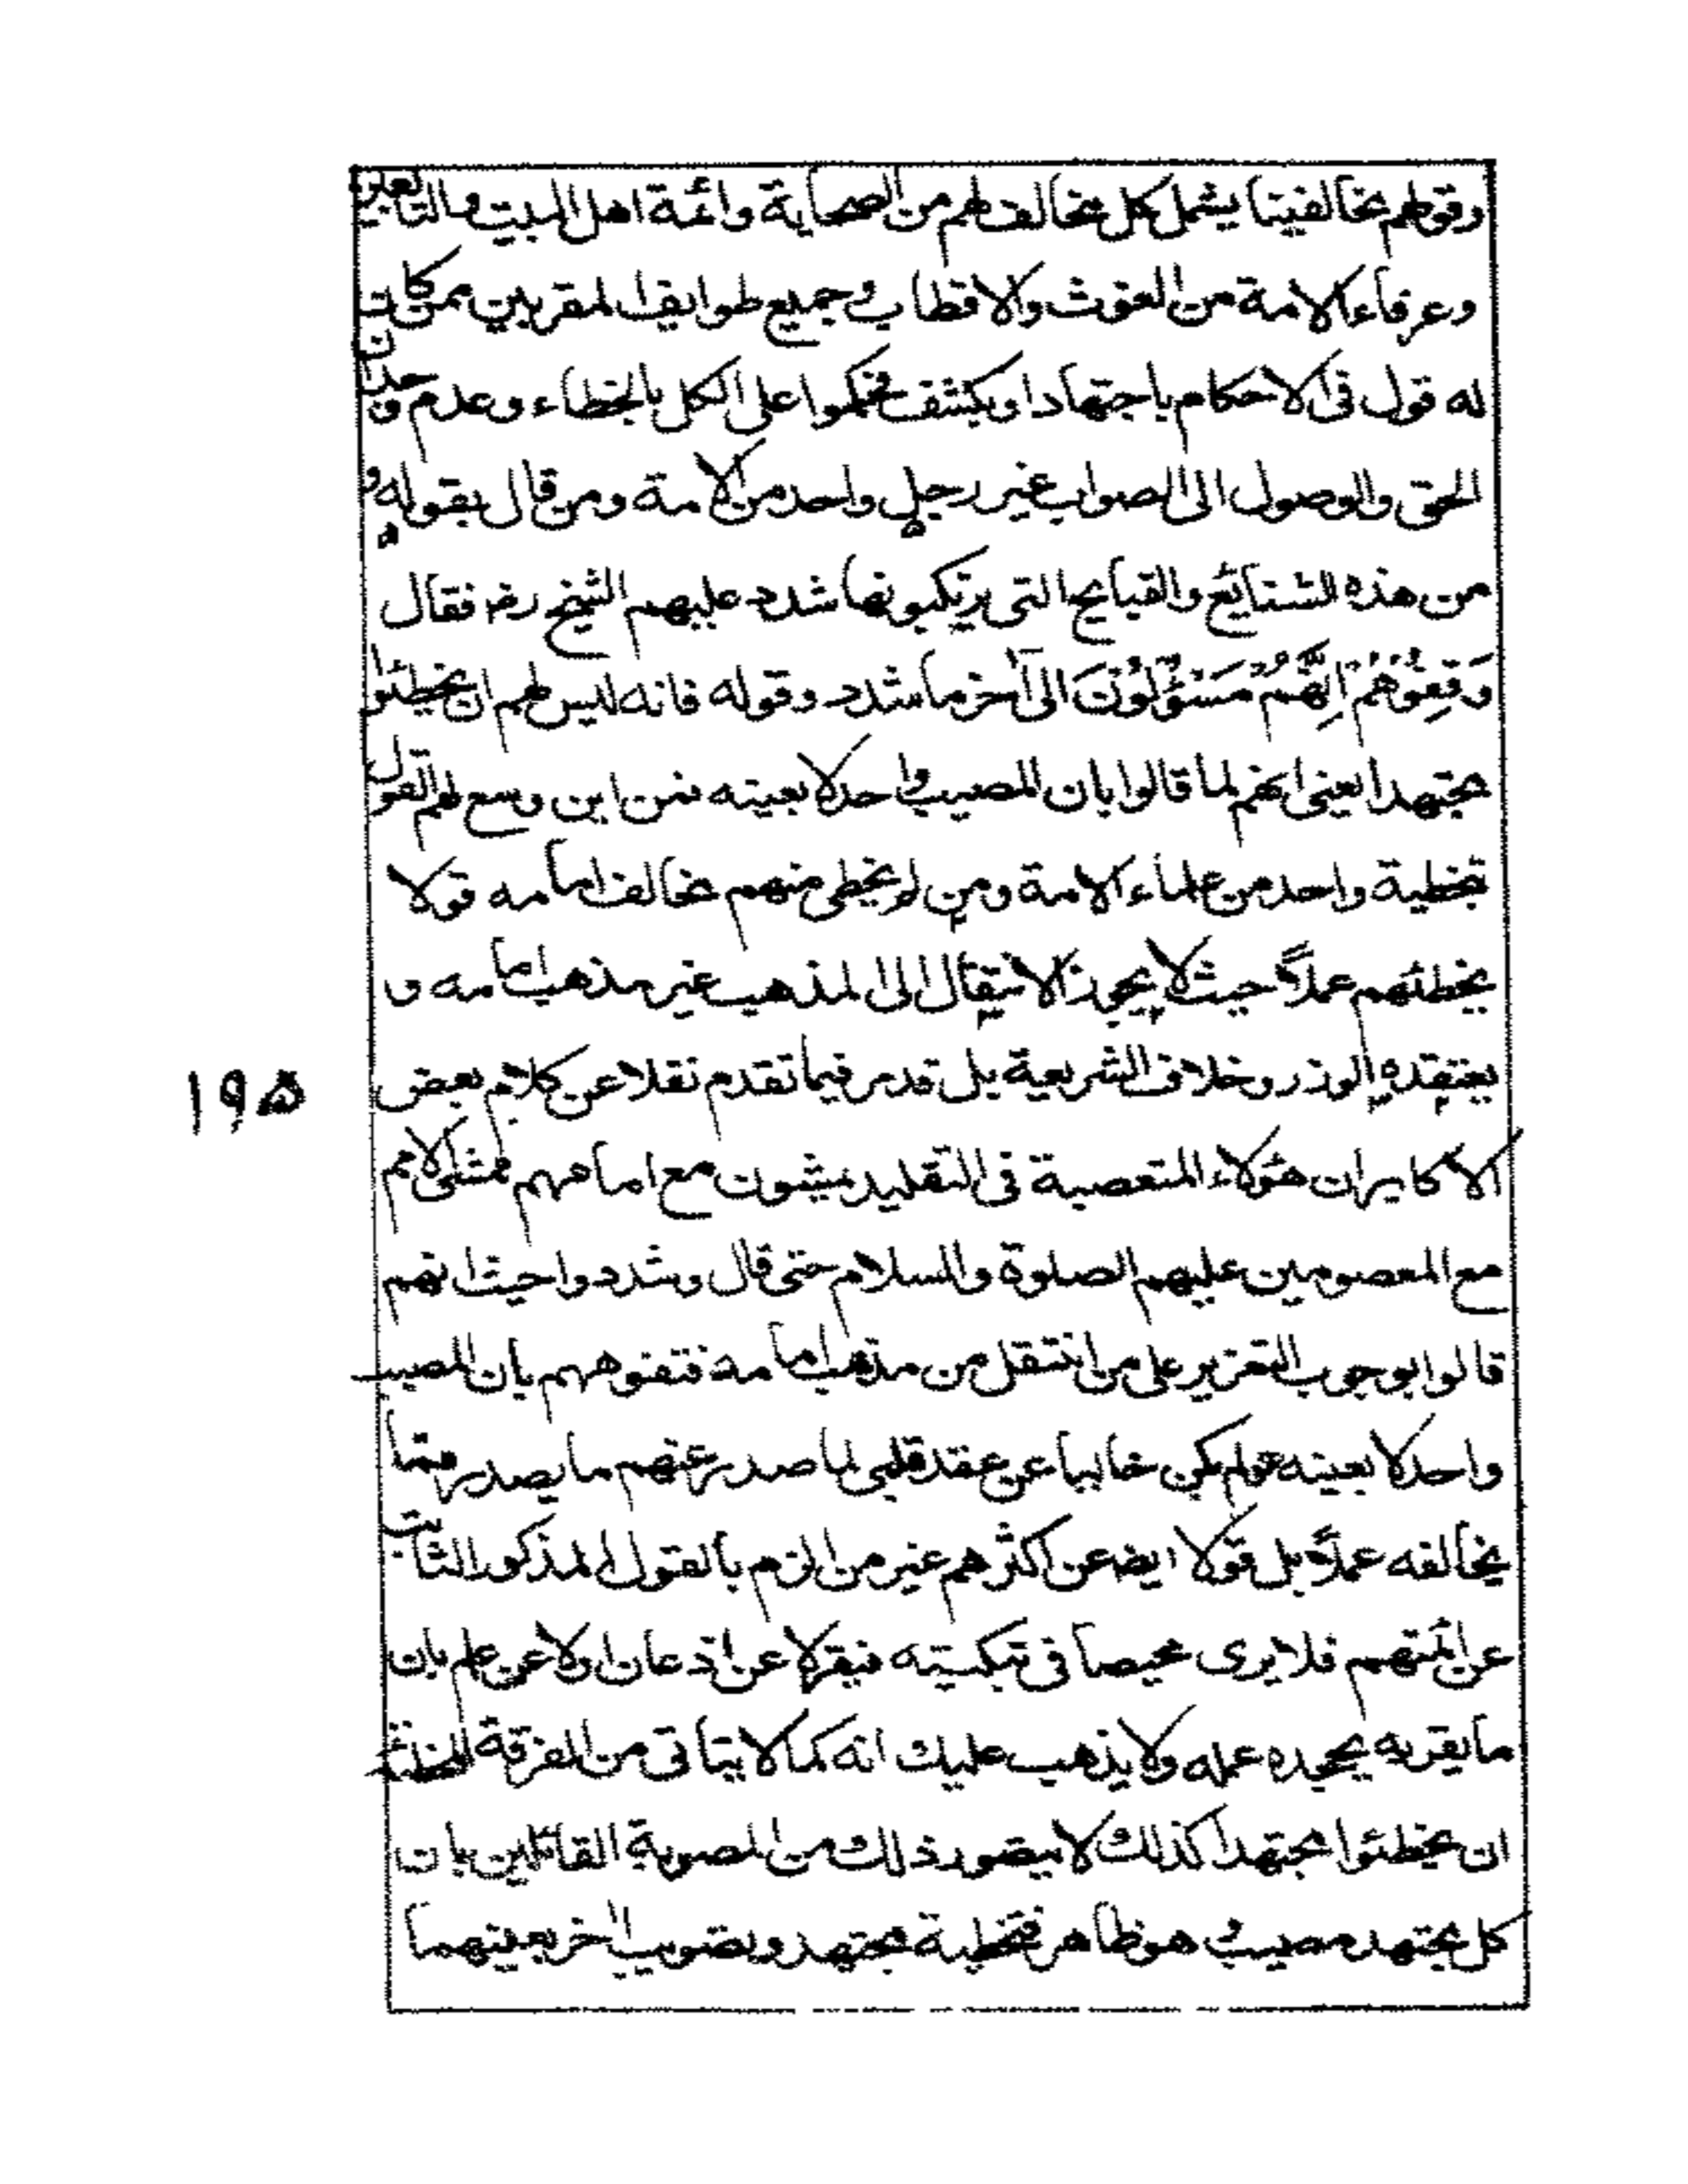 وقولهم مخالفينا يشمل كل مخالف لهم من الصحابة وائمة اهل البيت والتابعين
وعرفاء الامة من الغوث والاقطاب وجميع طوايف المقربين ممن كان
له قول فى الاحكام باجتهاد او بكشف فحكموا على الكل بالخطاء وعدم وجدان
الحق والوصول الى الصواب غير رجل واحد من الامة ومن قال بقوله و
من هذه الشنايع والقبايح التى يرتكبونها شدد عليهم الشيخ رضـ فقال
وَقِفُوهُمْ اِنَّهُمْ مَسْؤُلُوْنَ الى آخر ما شدد وقوله فانه ليس لهم ان يخطئوا
مجتهدا يعنى انهم لما قالوا بان المصيب واحد لا بعينه فمن اين وسع لهم القول
بتخطية واحد من علماء الامة ومن لم يخطى منهم مخالف امامه قولا
يخطئهم عملاً حيث لا يجوز الانتقال الى المذهب غير مذهب امامه و
يعتقده الوزر وخلاف الشريعة بل قد مر فيما تقدم نقلا عن كلام بعض
الاكابر ان هؤلاء المتعصبة فى التقليد يمشون مع امامهم ممشى الامم
مع المعصومين عليهم الصلوة والسلام حتى قال وشددوا حيث انهم
قالوا بوجوب التعزير على من انتقل من مذهب امامه فتفوههم بان المصيب
واحد لا بعينه لو لم يكن خاليا عن عقد قلبى لما صدر عنهم ما يصدر مما
يخالفه عملاً بل قولا ايضـ عن اكثرهم غير من الزم بالقول المذكور الثابت
عن ائمتهم فلا يرى محيصا فى تبكيته فيقر لا عن اذعان ولا عن علم بان
ما يقر به يجحده عمله ولا يذهب عليك انه كما لا يتاتى من الفرقة المخطئة
ان يخطئوا مجتهدا كذلك لا يتصور ذلك من المصوبة القائلين بان
كل مجتهد مصيب وهو ظاهر فتخطية مجتهد وتصويب اخر بعينهما
١٩۵